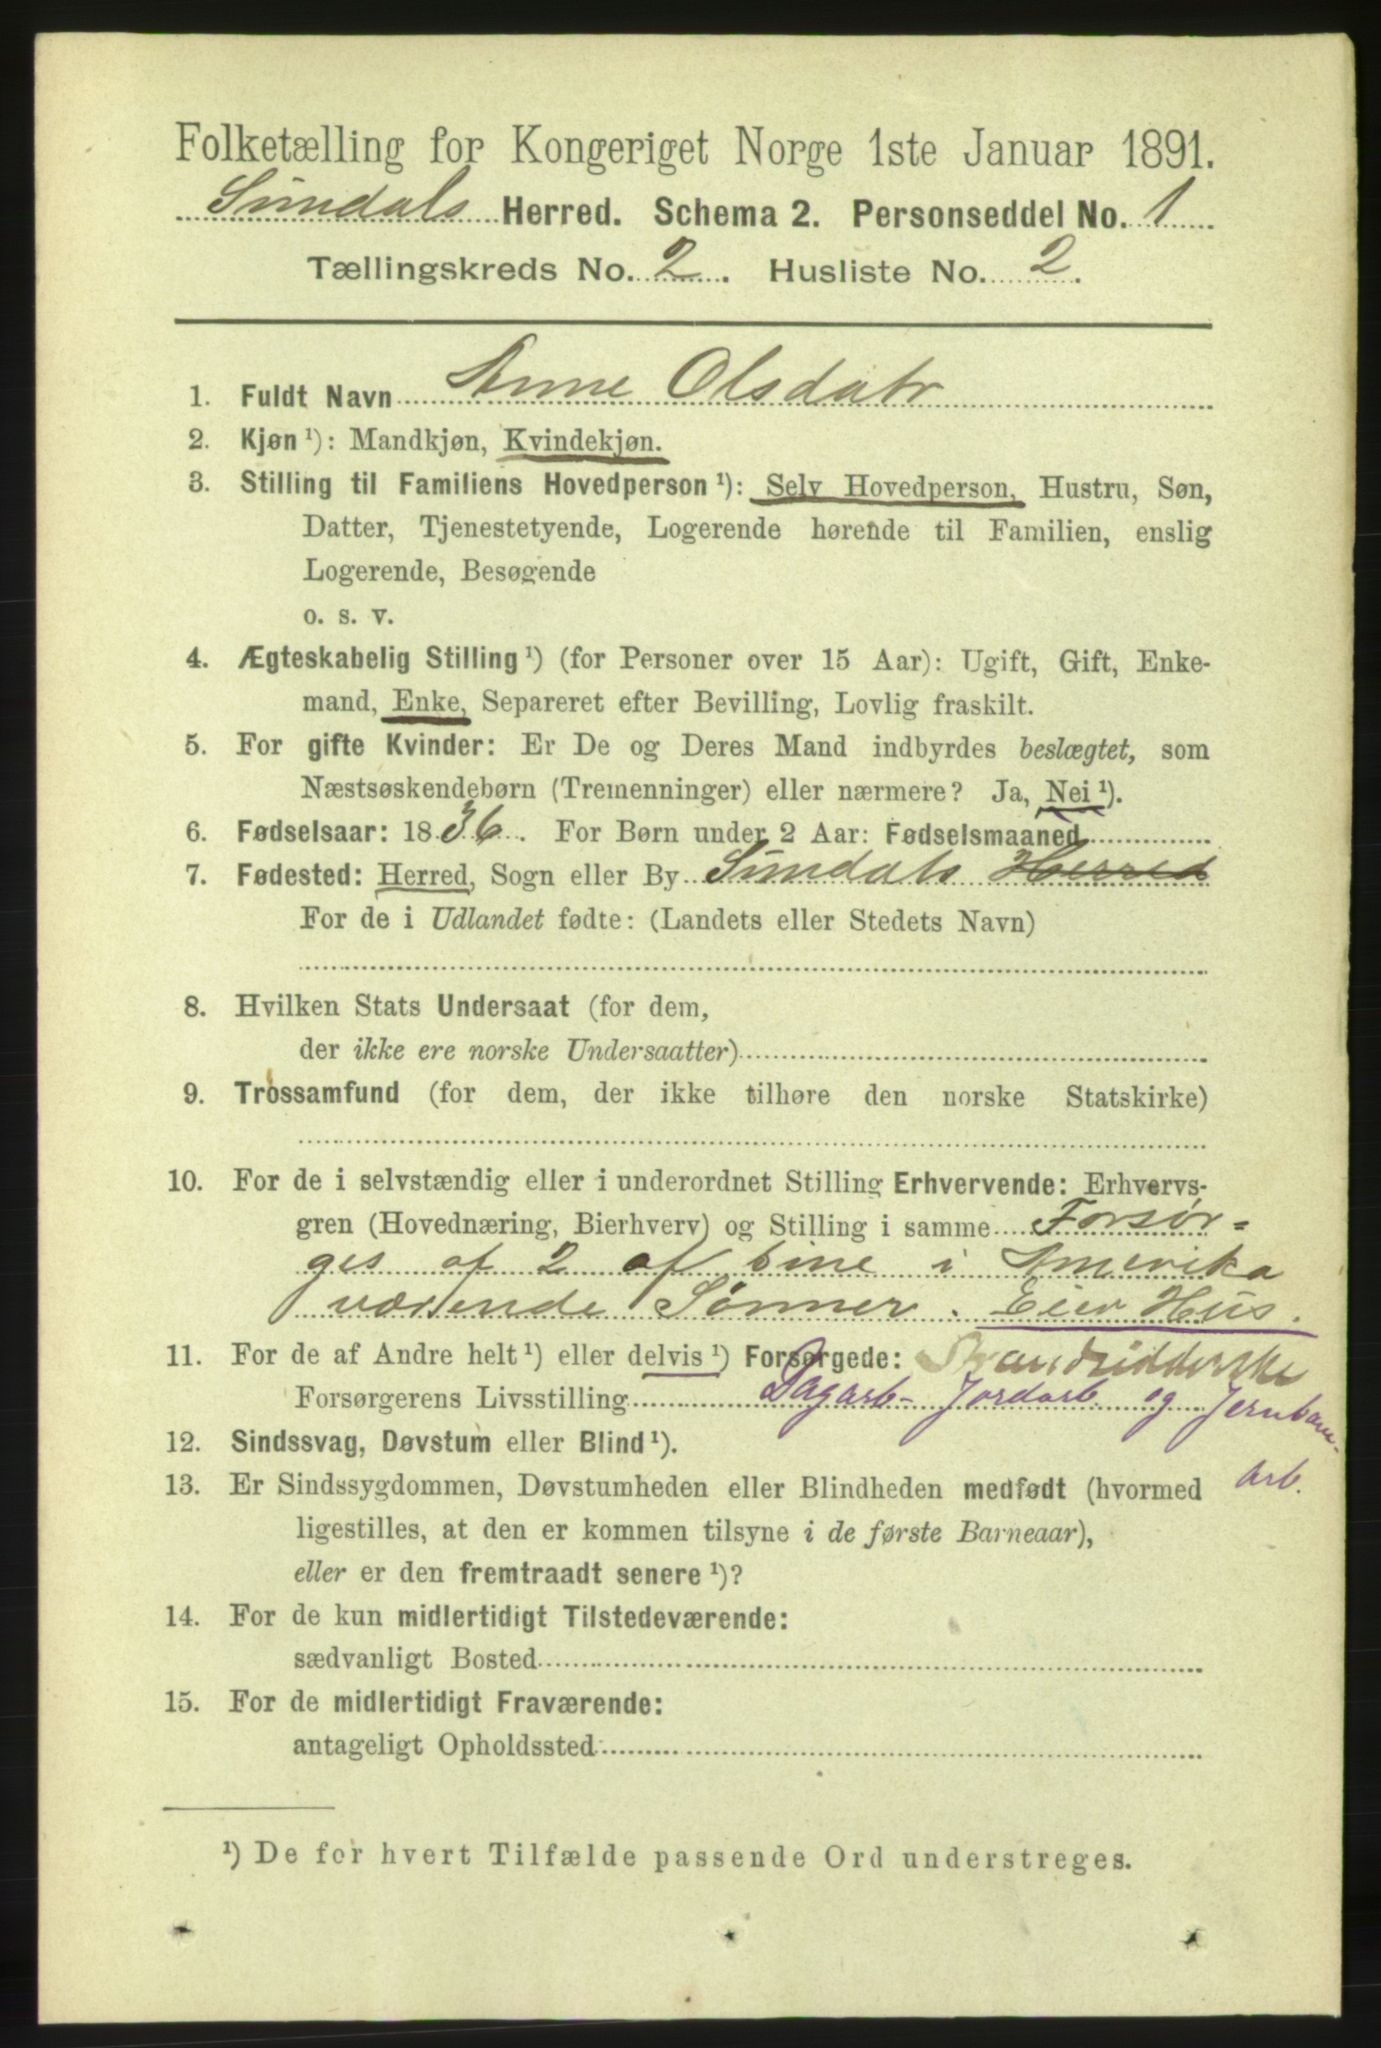 Folketælling for Kongeriget Norge 1ste Januar 1891.
Sundals Herred. Schema 2. Personseddel No. 1
Tællingskreds No. 2. Husliste No. 2.
1. Fuldt Navn Anne Olsdatr
2. Kjøn ¹): Mandkjøn, Kvindekjøn.
3. Stilling til Familiens Hovedperson ¹): Selv Hovedperson, Hustru, Søn,
Datter, Tjenestetyende, Logerende hørende til Familien, enslig
Logerende, Besøgende
o. s. v.
4. Ægteskabelig Stilling ¹) (for Personer over 15 Aar): Ugift, Gift, Enke-
mand, Enke, Separeret efter Bevilling, Lovlig fraskilt.
5. For gifte Kvinder: Er De og Deres Mand indbyrdes beslægtet, som
Næstsøskendebørn (Tremenninger) eller nærmere? Ja, Nei ¹).
6. Fødselsaar: 1836. For Børn under 2 Aar: Fødselsmaaned
7. Fødested: Herred, Sogn eller By Sundals Herred
For de i Udlandet fødte: (Landets eller Stedets Navn)
8. Hvilken Stats Undersaat (for dem,
der ikke ere norske Undersaatter)
9. Trossamfund (for dem, der ikke tilhøre den norske Statskirke)
10. For de i selvstændig eller i underordnet Stilling Erhvervende: Erhvervs-
gren (Hovednæring, Bierhverv) og Stilling i samme Forsør=
ges af 2 af sine i Amerika
værende Sønner. Eier Hus.
11. For de af Andre helt ¹) eller delvis ¹) Forsørgede: Strandsidderske
Forsørgerens Livsstilling Dagarb- Jordarb. og Jernban-
arb.
12. Sindssvag, Døvstum eller Blind ¹).
13. Er Sindssygdommen, Døvstumheden eller Blindheden medfødt (hvormed
ligestilles, at den er kommen tilsyne i de første Barneaar),
eller er den fremtraadt senere ¹)?
14. For de kun midlertidigt Tilstedeværende:
sædvanligt Bosted
15. For de midlertidigt Fraværende:
antageligt Opholdssted
¹) De for hvert Tilfælde passende Ord understreges.